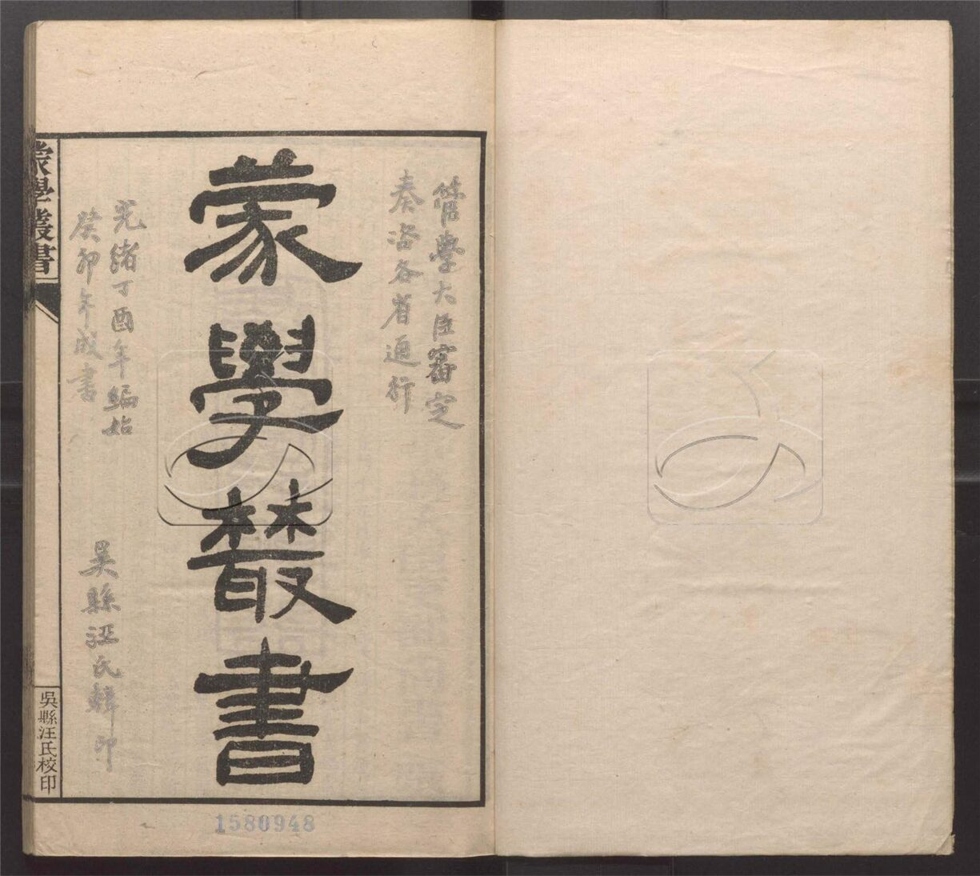 管學大臣審定
奏咨各省通行
蒙學叢書
光緒丁酉年編始
癸卯年成書
吳縣汪氏輯印
蒙學叢書
吳縣汪氏校印
1580948